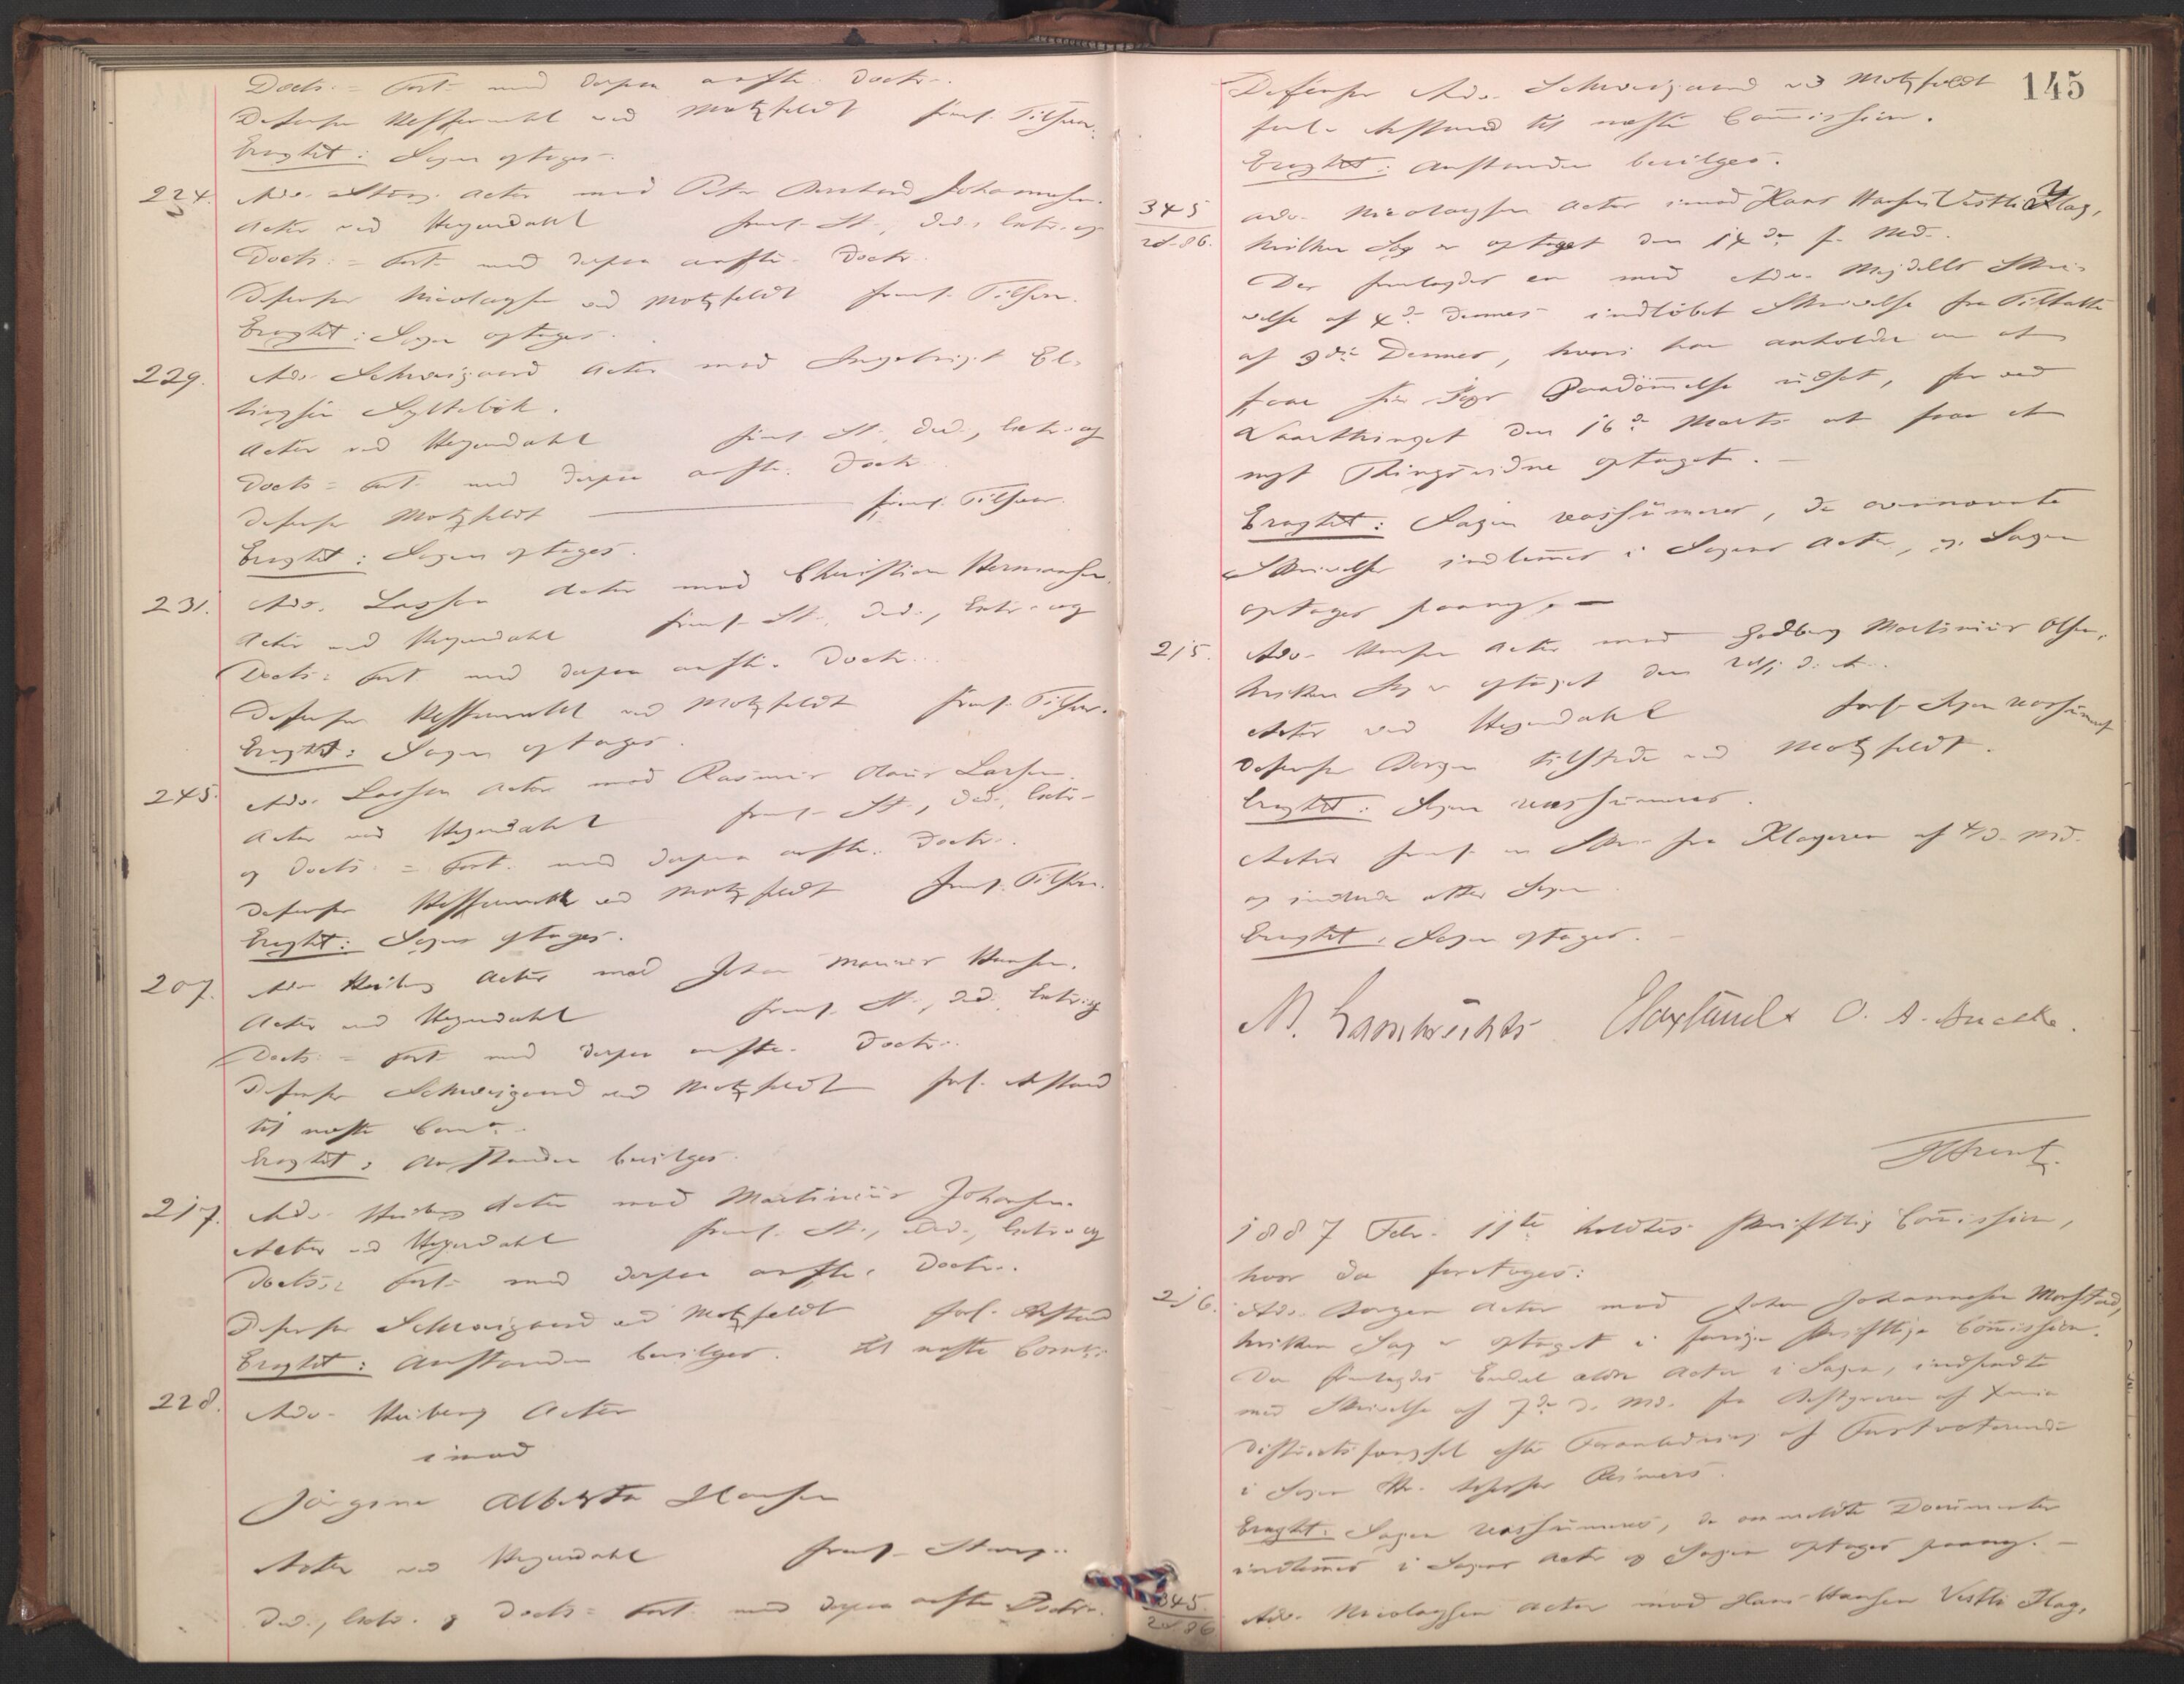 Docts = Fort. med derpaa anfte. Doctr.
Defensor ved Motzfeldt frems. Tilsvar.
Eragtet: Sagen optages.
224. Adv. Stang Actor mod Peter Johannesen.
Actor ved Heyerdahl frems. St., Ded., Extr. og
Docts. = Fort. med derpaa anfte. Doctr.
Defensor Nicolaysen ved Motzfeldt frems. Tilsvar.
Eragtet: Sagen optages.
229. Adv. Schweigaard Actor mod Ingebrigt El-
lingsen
Actor ved Heyerdahl frems. St., Ded., Extr. og
Docts = Fort. med derpaa anfte. Doctr.
Defensor Motzfeldt frems. Tilsvar.
Eragtet: Sagen optages.
231. Adv. Lassen Actor mod Christian Hermansen.
Actor ved Heyerdahl frems. St., Ded., Extr. og
Docts = Fort. med derpaa anfte. Doctr.
Defensor ved Motzfeldt frems. Tilsvar.
Eragtet: Sagen optages.
245. Adv. Lassen Actor mod Rasmus Larsen.
Actor ved Heyerdahl frems. St., Ded., Extr.
og Docts. = Fort. med derpaa anfte. Doctr.
Defensor ved Motzfeldt frems. Tilsvar.
Eragtet: Sagen optages.
207. Adv. Heiberg Actor mod Johan Hansen.
Actor ved Heyerdahl frems. St., Ded., Extr. og
Docts. = Fort. med derpaa anfte. Doctr.
Defensor Schweigaard ved Motzfeldt forl. Anstand
til næste Comn.
Eragtet: Anstanden bevilges.
217. Adv. Heiberg Actor mod Martinius Johansen.
Actor ved Heyerdahl frems. St., Ded., Extr. og
Docts. = Fort. med derpaa anfte. Doctr.
Defensor Schweigaard ved Motzfeldt forl. Anstand
Eragtet: Anstanden bevilges. til næste Comn.
228. Adv. Heiberg Actor
imod
Jørgine Alberta Hansen
Actor ved Heyerdahl frems. Stævn.
Ded., Extr. og Docts = Fort. med derpaa anfte Doctr.
145
Defensor Adv. Schweigaard ved Motzfeldt
forl. Anstand til næste Commission.
Eragtet: Anstanden bevilges.
345/2d-86. Adv. Nicolaysen Actor imod Hans Hansen Vestli Flag,
hvilken Sag er optaget den 14de f. Md.
Der fremlagdes en med Adv. Mejdells Skri-
velse af 4de Dennes indløbet Skrivelse fra Tiltalte
af 3die Dennes, hvori han anholder om at
faae sin Sags Paadømmelse udsat, for ved
Vaarthinget den 16de Marts at faae et
nyt Thingsvidne optaget.
Eragtet: Sagen reassumeres, de ovennævnte
Skrivelser indlemmes i Sagens Acter, og Sagen
optages paany.
215. Adv. Hansen Actor mod Martinius Olsen,
hvilken Sag er optaget den d. A.
Actor ved Heyerdahl forl. Sagen reassumeret
Defensor Bergen tilstede ved Motzfeldt.
Eragtet: Sagen reassumeres.
Actor frems. en Skr. fra Klageren af 4/d. Md.
og indlod atter Sagen
Eragtet: Sagen optages.
M. Lambrechts O. A.
1887 Febr. 11te holdtes skriftlig Commission,
hvor da foretoges:
216. Adv. Bergen Actor mod Johan Johannesen
hvilken Sag er optaget i forrige skriftlige Commission.
Der fremlagdes Endel ældre Acter i Sagen, indsendte
med Skrivelse af 7de d. Md. fra Bestyreren af Xania
Districtsfængsel efter Foranledning af Førstvoterende
i Sagen Hr. Assessor Reimers.
Eragtet: Sagen reassumeres, de anmeldte Documenter
indlemmes i Sagens Acter og Sagen optages paany.
345/2d 86 Adv. Nicolaysen Actor mod Hans Hansen Vestli Flag,